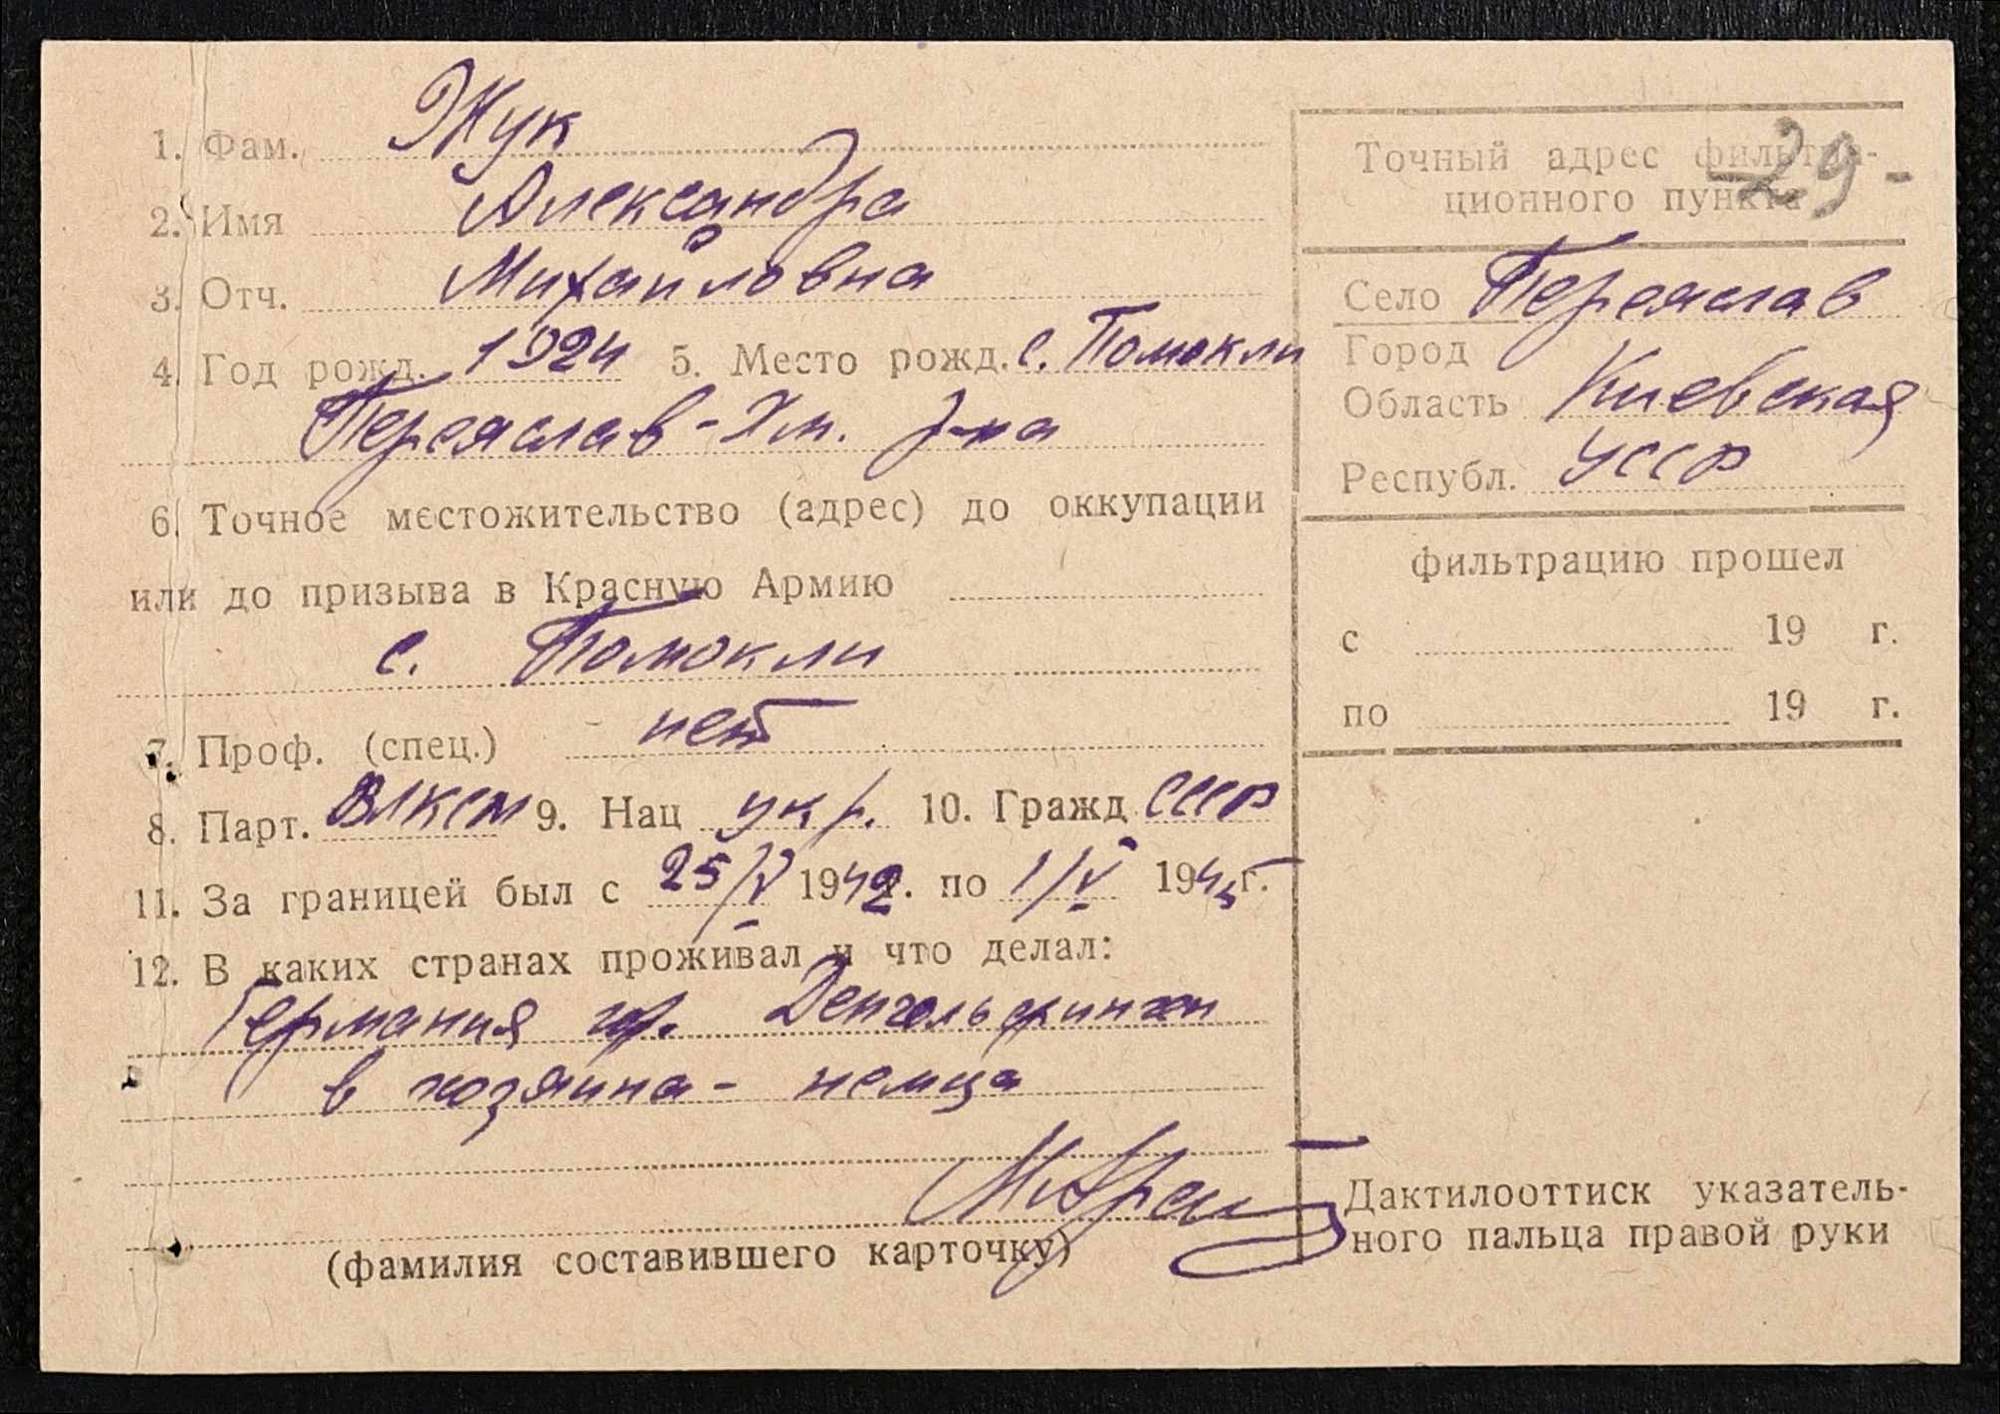 1. Фам. Жук
2. Имя Александра
3. Отч. Михайловна
4. Год рожд. 1924 5. Место рожд. с. Помокли
Переяслав-Хм. р-на
6. Точное местожительство (адрес) до оккупации
или до призыва в Красную Армию
с. Помокли
7. Проф. (спец.) нет
8. Парт. ВЛКСМ 9. Нац укр. 10. Гражд СССР
11. За границей был с 25/V 1942г. по 1/V 1945г.
12. В каких странах проживал и что делал:
Германия гор.
в хозяина - немца
(фамилия составившего карточку)
29-
Точный адрес фильтра-
ционного пункта
Село Переяслав
Город
Область Киевская
Республ. УССР
фильтрацию прошел
с 19 г.
по 19 г.
Дактилооттиск указатель-
ного пальца правой руки